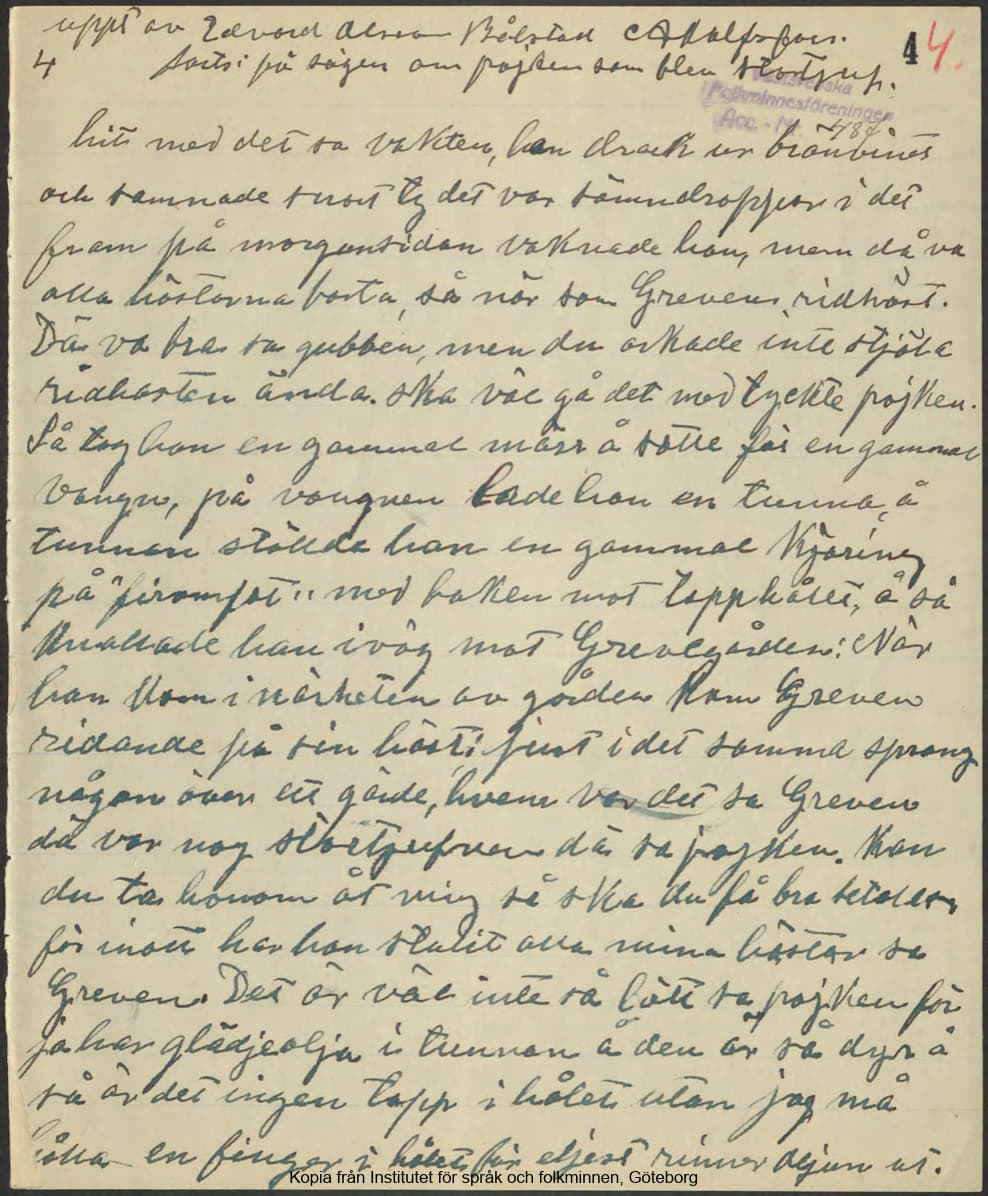 uppt av Edvard Olsson Bålstad Adolfsfors.
4 4.
4 forts: på sägen om pojken som blev stortjuf.
Västsvenska
Folkminnesföreningen
Acc. - Nr.
hit med det sa vakten, han drack ur brännvinet
och somnade snart ty det var sömndroppar i det
fram på morgonsidan vaknade han, men då va
alla hästarna borta, så när som Grevens ridhäst.
Dä va bra sa gubben, men du orkade inte stjöla
ridhästen ända. ska väl gå det med tyckte pojken.
Så tog han en gammal märr å sätte för en gammal
vangn, på vangnen lade han en tunna, å
tunnan ställde han en gammal Kjäring
på "firomfot" med baken mot tapphålet, å så
knallade han iväg mot Grevegården: När
han kom i närheten av gården kom Greven
ridande på sin häst; just i det samma sprang
någon över ett gärde, hvem var det sa Greven
dä var nog stortjufven dä sa pojken. Kan
du ta honom åt mig så ska du få bra betalt
för inatt har han stulit alla mina hästar sa
Greven. Det är väl inte så lätt sa pojken för
ja har glädjeolja i tunnan å den är så dyr å
så är det ingen tapp i hålet utan jag må
hålla en finger i hålet för eljest rinner oljan ut.
Kopia från Institutet för språk och folkminnen, Göteborg